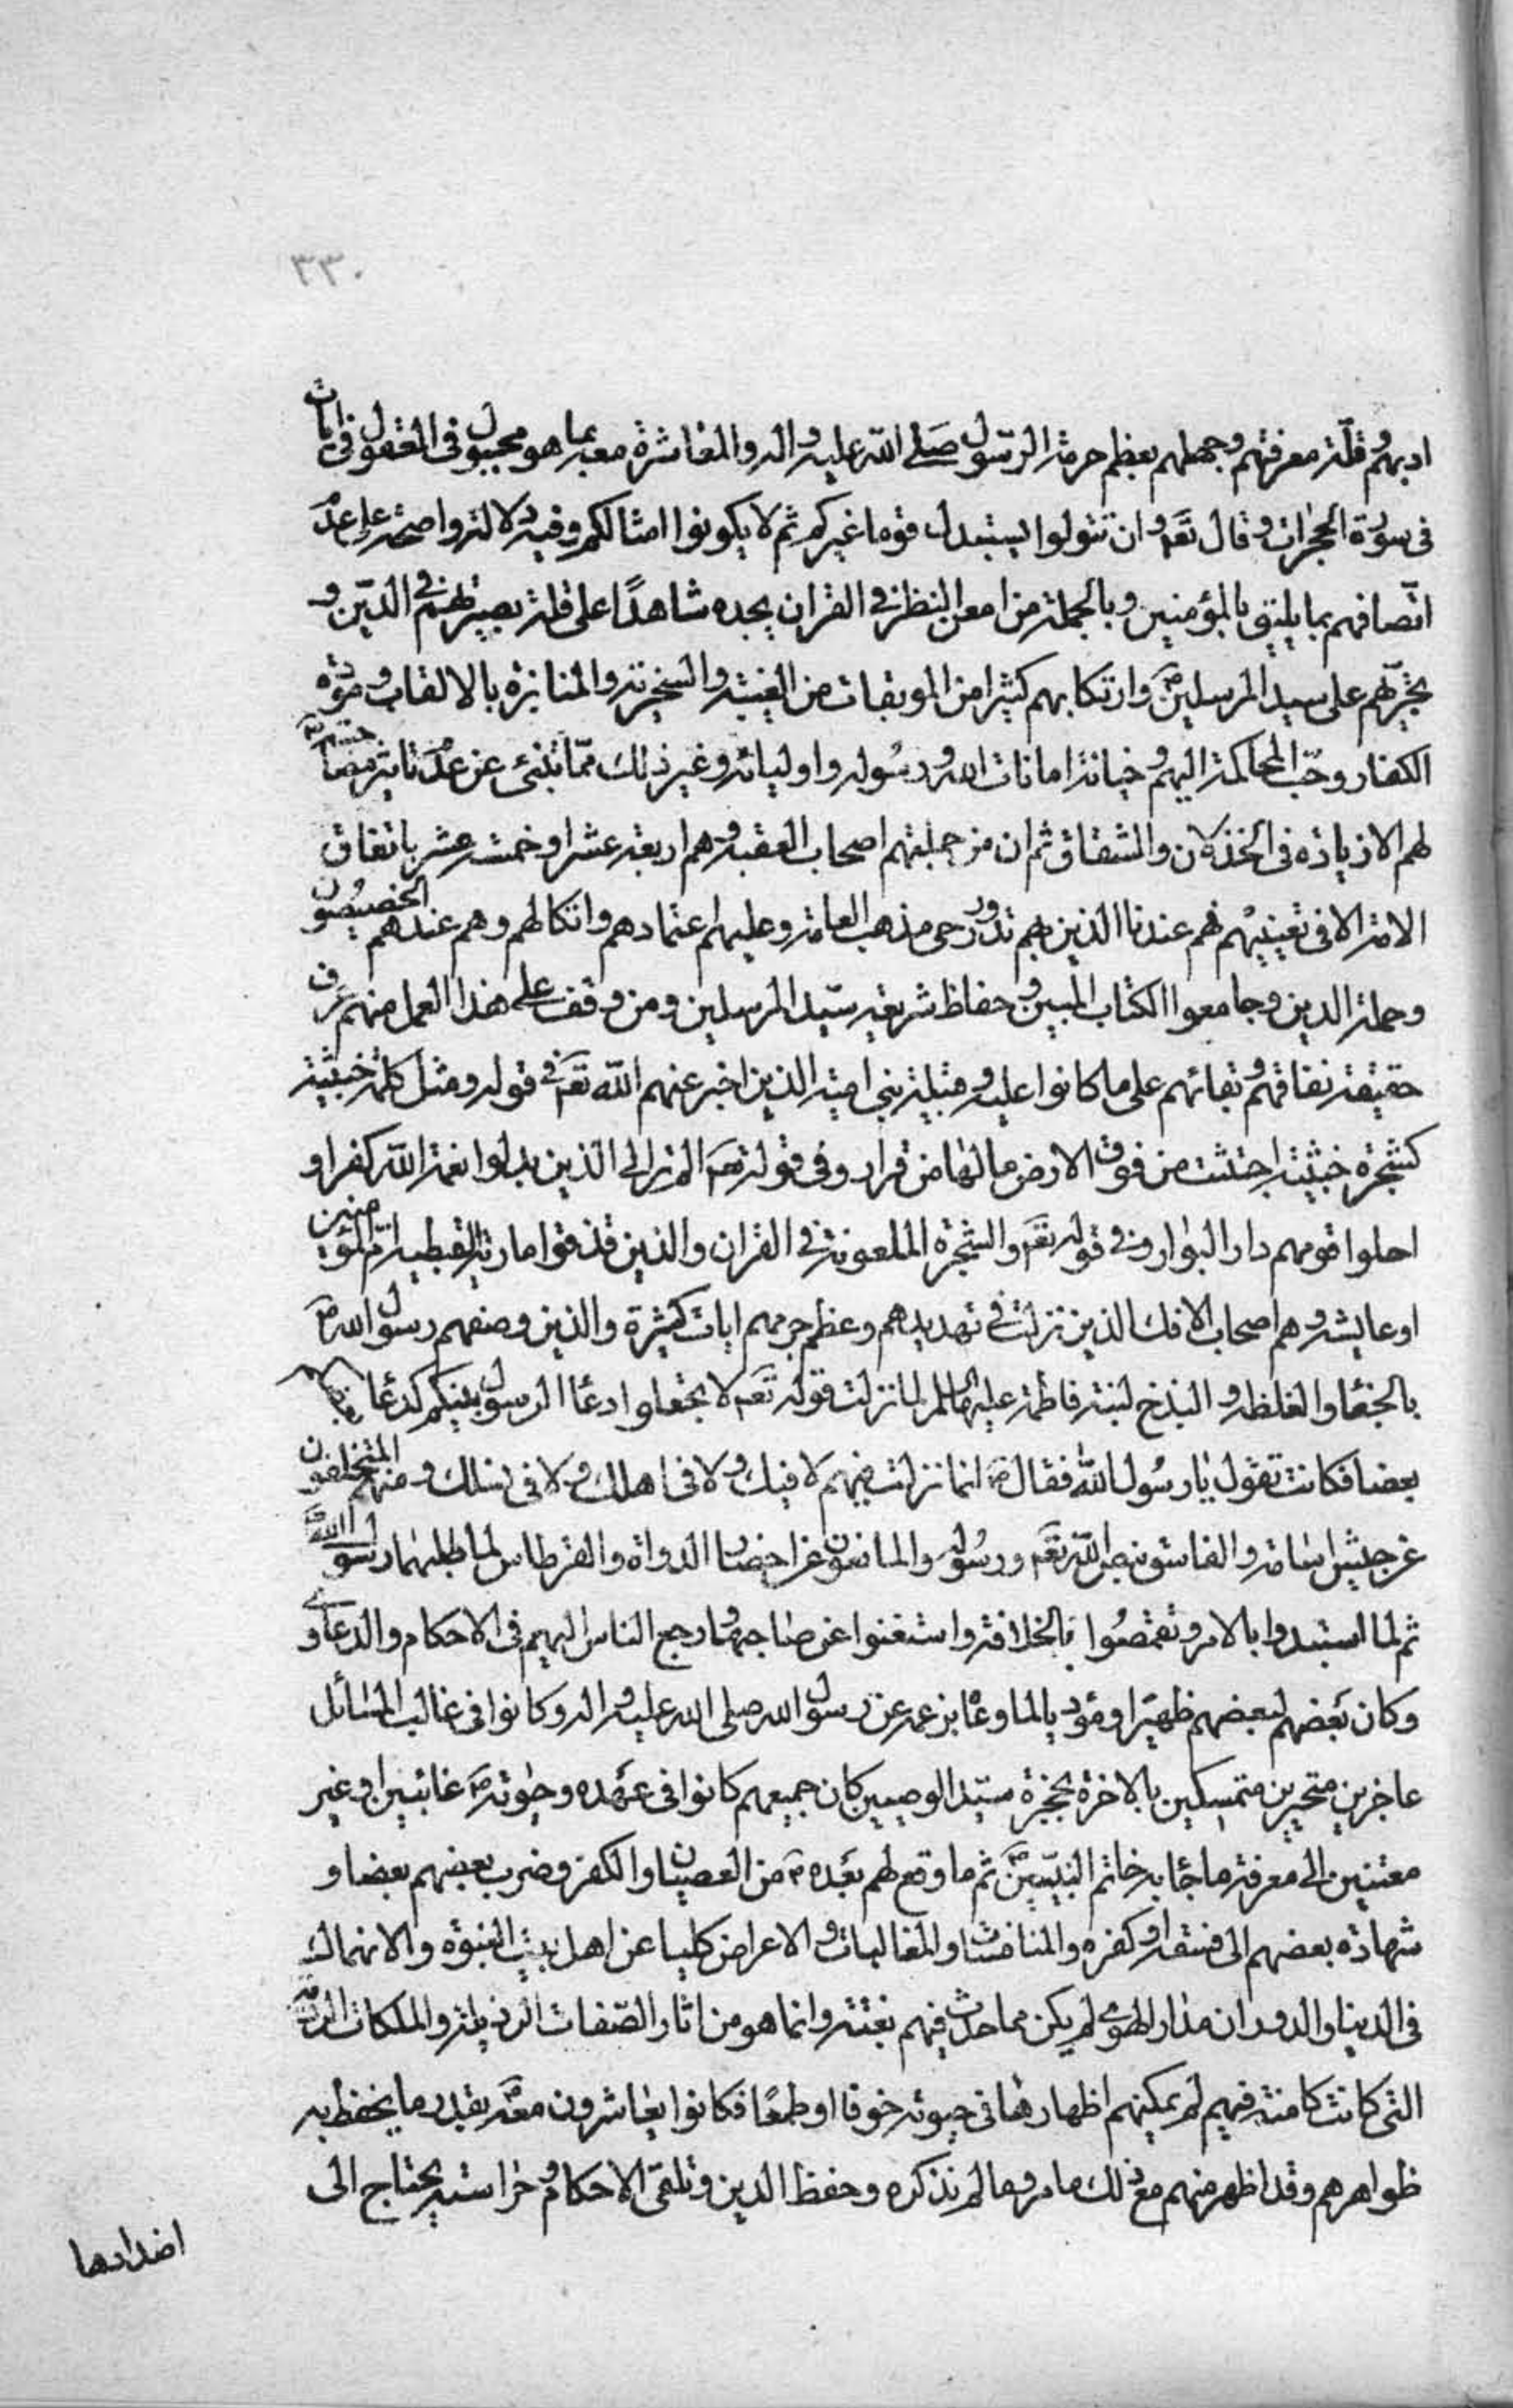 ٣٣٠
ادبهم وقلة معرفتهم وجهلهم بعظم حرمة الرسول صلى الله عليه واله والمعاشرة معه بما هو مجبول في العقول في ايات
في سورة الحجرات وقال تعَ وان تتولوا يستبدل قوما غيركم ثم لا يكونوا امثالكم وفيه دلالة واضحة على عدم
اتصافهم بما يليق بالمؤمنين وبالجملة من امعن النظر في القران يجده شاهدًا على قلة بصيرتهم في الدين و
تجرّيهم على سيد المرسلين ص وارتكابهم كثيرا من الموبقات من الغيبة والسخرية والمنابزة بالالقاب ومودة
الكفار وحب المحاكمة اليهم وخيانة امانات الله ورسوله واوليائه وغير ذلك ممّا تنبئ عن عدم تاثير مصاحبته
لهم الا زيادة في الخذلان والشقاق ثم ان من جملتهم اصحاب العقبة وهم اربعة عشر او خمسة عشر باتفاق
الامة الا في تعيينهم فهم عندنا الذين بهم تدور رحى مذهب العامة وعليهم اعتمادهم واتكالهم وهم عندهم الخصيصون
وحملة الدين وجامعوا الكتاب المبين وحفاظ شريعة سيّد المرسلين ومن وقف على هذا العمل منهم عرف
حقيقة نفاقهم وبقائهم على ما كانوا عليه وقبيلة بني امية الذين اخبر عنهم الله تعَ في قوله ومثل كلمة خبيثة
كشجرة خبيثة اجتثت من فوق الارض ما لها من قرار وفي قوله تعَ الم تر الى الذين بدلوا نعمة الله كفرا و
احلوا قومهم دار البوار وفي قوله تعَ والشجرة الملعونة في القران والذين قذفوا مارية القبطية ام المؤمنين
او عايشة وهم اصحاب الافك الذين نزلت في تهديدهم وعظم جرمهم ايات كثيرة والذين وصفهم رسول الله ص
بالجفاء والغلظة والبذخ لبنته فاطمة عليها السلام لما نزلت قوله تعَ لا تجعلوا دعاء الرسول بينكم كدعاء بعضكم
بعضا فكانت تقول يا رسول الله فقال ص انما نزلت فيهم لا فيك ولا في اهلك ولا في نسلك ومنهم المتخلفون
عن جيش اسامة والفاسقون بنص الله تعَ ورسوله والمانعون عن احضار الدواة والقرطاس لما طلبهما رسول الله ص
ثم لما استبدوا بالامر وتقمصُوا بالخلافة واستغنوا عن صاحبها ورجع الناس اليهم في الاحكام والدعاوي
وكان بعضهم لبعضهم ظهيرا ومؤديا لما وعاه بزعمه عن رسول الله صلى الله عليه واله وكانوا في غالب المسائل
عاجزين متحيرين متمسكين بالاخرة بحجزة سيّد الوصيين كان جميعهم كانوا في عهده وحيوته ص غائبين او غير
معتنين الى معرفة ما جاء به خاتم النبيين ص ثم ما وقع لهم بعده ص من العصيان والكفر وضرب بعضهم بعضا و
شهادة بعضهم الى فسقه او كفره والمنافسات والمغالبات والاعراض كليا عن اهل بيت النبوة والانهماك
في الدنيا والدوران مدار الهوى لم يكن مما حدث فيهم بغتة وانما هو من اثار الصفات الرذيلة والملكات الرديّة
التي كانت كامنة فيهم لم يمكنهم اظهارها في حيوته خوفا او طمعًا فكانوا يعاشرون معه بقدر ما يحفظ به
ظواهرهم وقد اظهر منهم مع ذلك ما مر وما لم نذكره وحفظ الدين وتلقى الاحكام وحراسته يحتاج الى
اضدادها